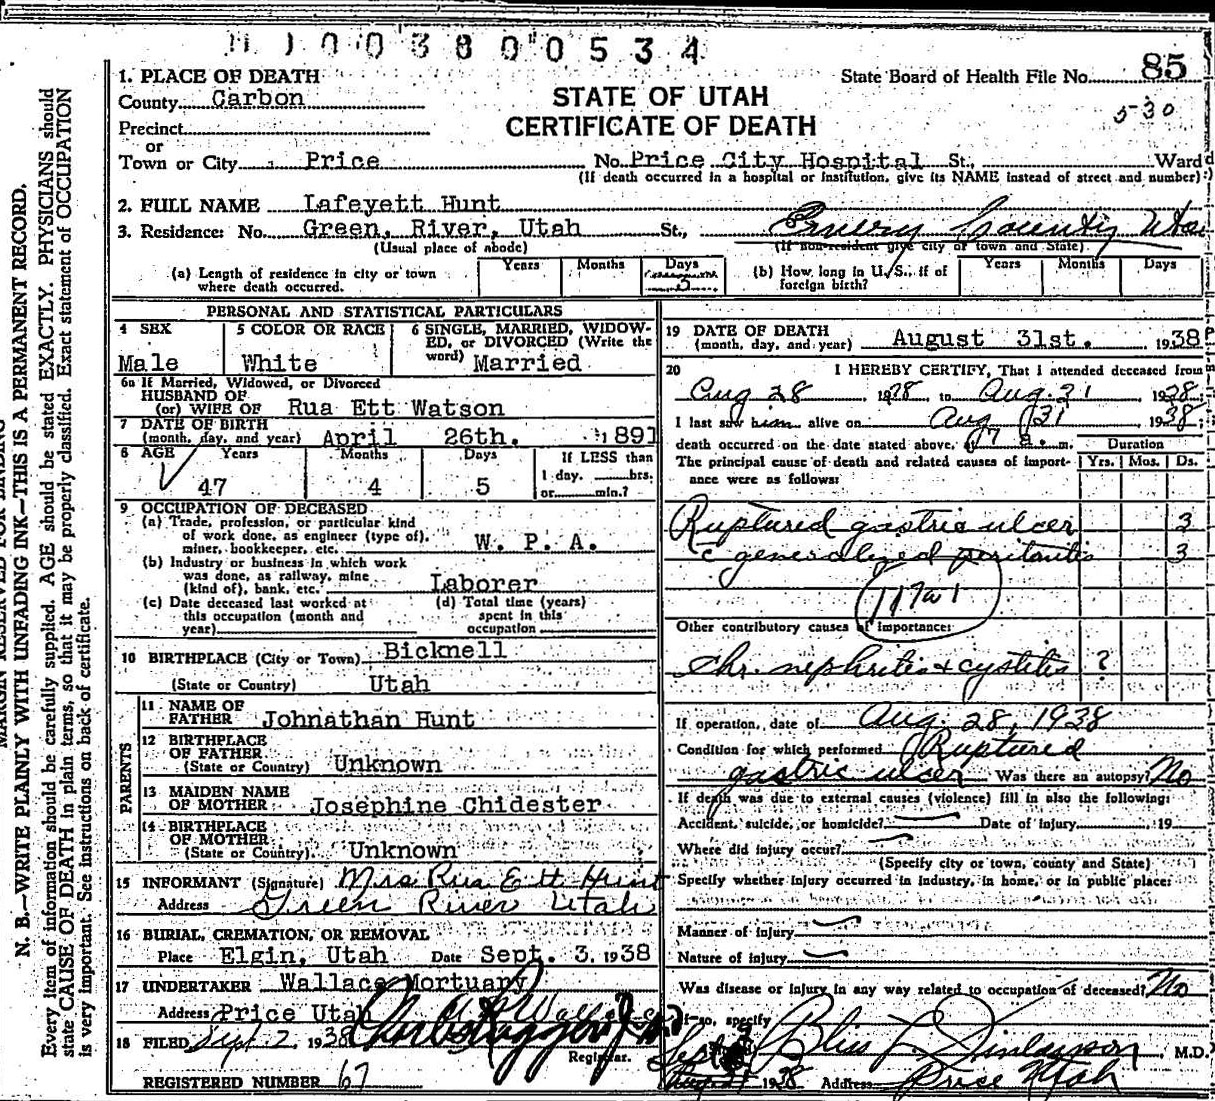 1003800534
1. PLACE OF DEATH
State Board of Health File No. 85
County Carbon
STATE OF UTAH
530
Precinct
CERTIFICATE OF DEATH
or
Town or City Price No. Price City Hospital St., Ward
(If death occurred in a hospital or institution, give its NAME instead of street and number)
2. FULL NAME Lafeyett Hunt
3. Residence: No. Green, River, Utah St., Emery County Utah
(Usual place of abode) (If non-resident give city or town and State)
(a) Length of residence in city or town where death occurred. Years Months Days 3
(b) How long in U. S., if of foreign birth? Years Months Days
PERSONAL AND STATISTICAL PARTICULARS
4 SEX Male
5 COLOR OR RACE White
6 SINGLE, MARRIED, WIDOWED, or DIVORCED (Write the word) Married
6a If Married, Widowed, or Divorced
HUSBAND OF
(or) WIFE OF Rua Ett Watson
7 DATE OF BIRTH
(month, day, and year) April 26th. 1891
8 AGE Years Months Days If LESS than
1 day, hrs.
47 4 5 or min.?
9 OCCUPATION OF DECEASED
(a) Trade, profession, or particular kind
of work done, as engineer (type of),
miner, bookkeeper, etc. W. P. A.
(b) Industry or business in which work
was done, as railway, mine
(kind of), bank, etc. Laborer
(c) Date deceased last worked at
this occupation (month and
year)
(d) Total time (years)
spent in this
occupation
10 BIRTHPLACE (City or Town) Bicknell
(State or Country) Utah
PARENTS
11 NAME OF
FATHER Johnathan Hunt
12 BIRTHPLACE
OF FATHER
(State or Country) Unknown
13 MAIDEN NAME
OF MOTHER Josephine Chidester
14 BIRTHPLACE
OF MOTHER
(State or Country) Unknown
15 INFORMANT (Signature) Mrs Rua Ett Hunt
Address Green River Utah
16 BURIAL, CREMATION, OR REMOVAL
Place Elgin, Utah Date Sept. 3. 1938
17 UNDERTAKER Wallace Mortuary
Address Price Utah
18 FILED Sept 2, 1938
Registrar.
REGISTERED NUMBER 67
19 DATE OF DEATH
(month, day, and year) August 31st. 1938
20 I HEREBY CERTIFY, That I attended deceased from
Aug 28, 1938, to Aug. 31, 1938
I last saw him alive on Aug 31, 1938;
death occurred on the date stated above, at 7 a. m. Duration
The principal cause of death and related causes of import- Yrs. Mos. Ds.
ance were as follows:
Ruptured gastric ulcer 3
c generalized peritonitis 3
117a1
Other contributory causes of importance:
chr. nephritis + cystitis ?
If operation, date of Aug. 28, 1938
Condition for which performed Ruptured
gastric ulcer Was there an autopsy? No
If death was due to external causes (violence) fill in also the following:
Accident, suicide, or homicide? Date of injury 19
Where did injury occur?
(Specify city or town, county and State)
Specify whether injury occurred in industry, in home, or in public place:
Manner of injury
Nature of injury
Was disease or injury in any way related to occupation of deceased? No
If so, specify
Bliss L Finlayson, M.D.
1938 Address Price Utah
N. B.—WRITE PLAINLY WITH UNFADING INK—THIS IS A PERMANENT RECORD.
Every item of information should be carefully supplied. AGE should be stated EXACTLY. PHYSICIANS should
state CAUSE OF DEATH in plain terms, so that it may be properly classified. Exact statement of OCCUPATION
is very important. See instructions on back of certificate.